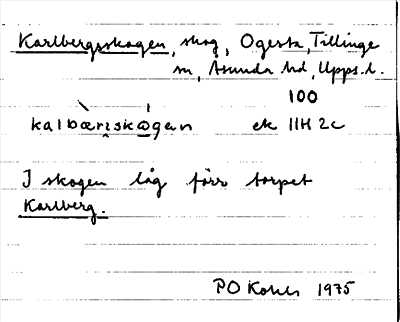 Karlbergsskogen, skog, Ogesta, Tillinge
sn, Åsunda hd, Upps. l.
100
kalbæ̀rɪskó̱gan ek 11H 2c
I skogen låg förr torpet
Karlberg.
PO 1975